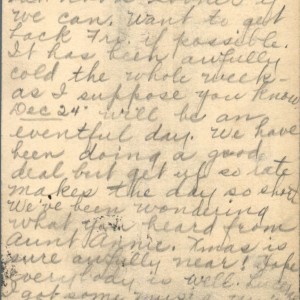 we can. Want to get
back Fri. if possible.
It has been awfully
cold the whole week-
as I suppose you know
Dec 24. will be an
eventful day. We have
been doing a good
deal but get up so late
makes the day so short
We've been wondering
what you heard from
Aunt Annie. Xmas is
sure awfully near! Hope
every day is well.
got some